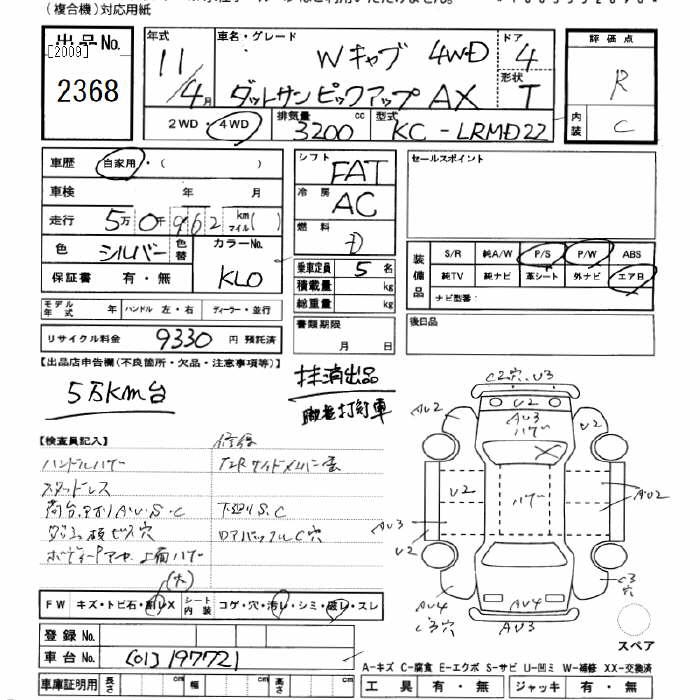 (複合機)対応用紙
出品No.
[2009]
2368
年式 11/4月
車名・グレード Wキャブ 4WD
ダットサンピックアップ AX
ドア 4
形状 T
2WD・4WD
排気量 3200 cc
型式 KC-LRMD22
評価点 R
内装 C
車歴 自家用・( )
車検 年 月
走行 5万0千962 km マイル( )
色 シルバー 色替
カラーNo. KL0
保証書 有・無
シフト FAT
冷房 AC
燃料 D
乗車定員 5 名
積載量 kg
総重量 kg
書類期限 月 日
セールスポイント
装備品
S/R 純A/W P/S P/W ABS
純TV 純ナビ 革シート 外ナビ エアB
ナビ型番:
後日品
モデル年式 年 ハンドル 左・右 ディーラー・並行
リサイクル料金 9330 円 預託済
【出品店申告欄(不良箇所・欠品・注意事項等)】
5万km台
抹消出品
職権打刻車
【検査員記入】
修復
ハンドルハゲ
スタッドレス
荷台アオリAU.S.C
下廻りS.C
リアバックルC穴
(大)
FW キズ・トビ石・割レX
シート内装 コゲ・穴・汚レ・シミ・破レ・スレ
登録No.
車台No. (01) 197721
車庫証明用 長さ cm 幅 cm 高さ cm
C2穴.U3
U2
AU2
AU3
ハゲ
U2
X
U2
ハゲ
AU2
AU3
U2
C3
穴
AU4
C3穴
AU4
AU3
スペア
A-キズ C-腐食 E-エクボ S-サビ U-凹ミ W-補修 XX-交換済
工具 有・無 ジャッキ 有・無